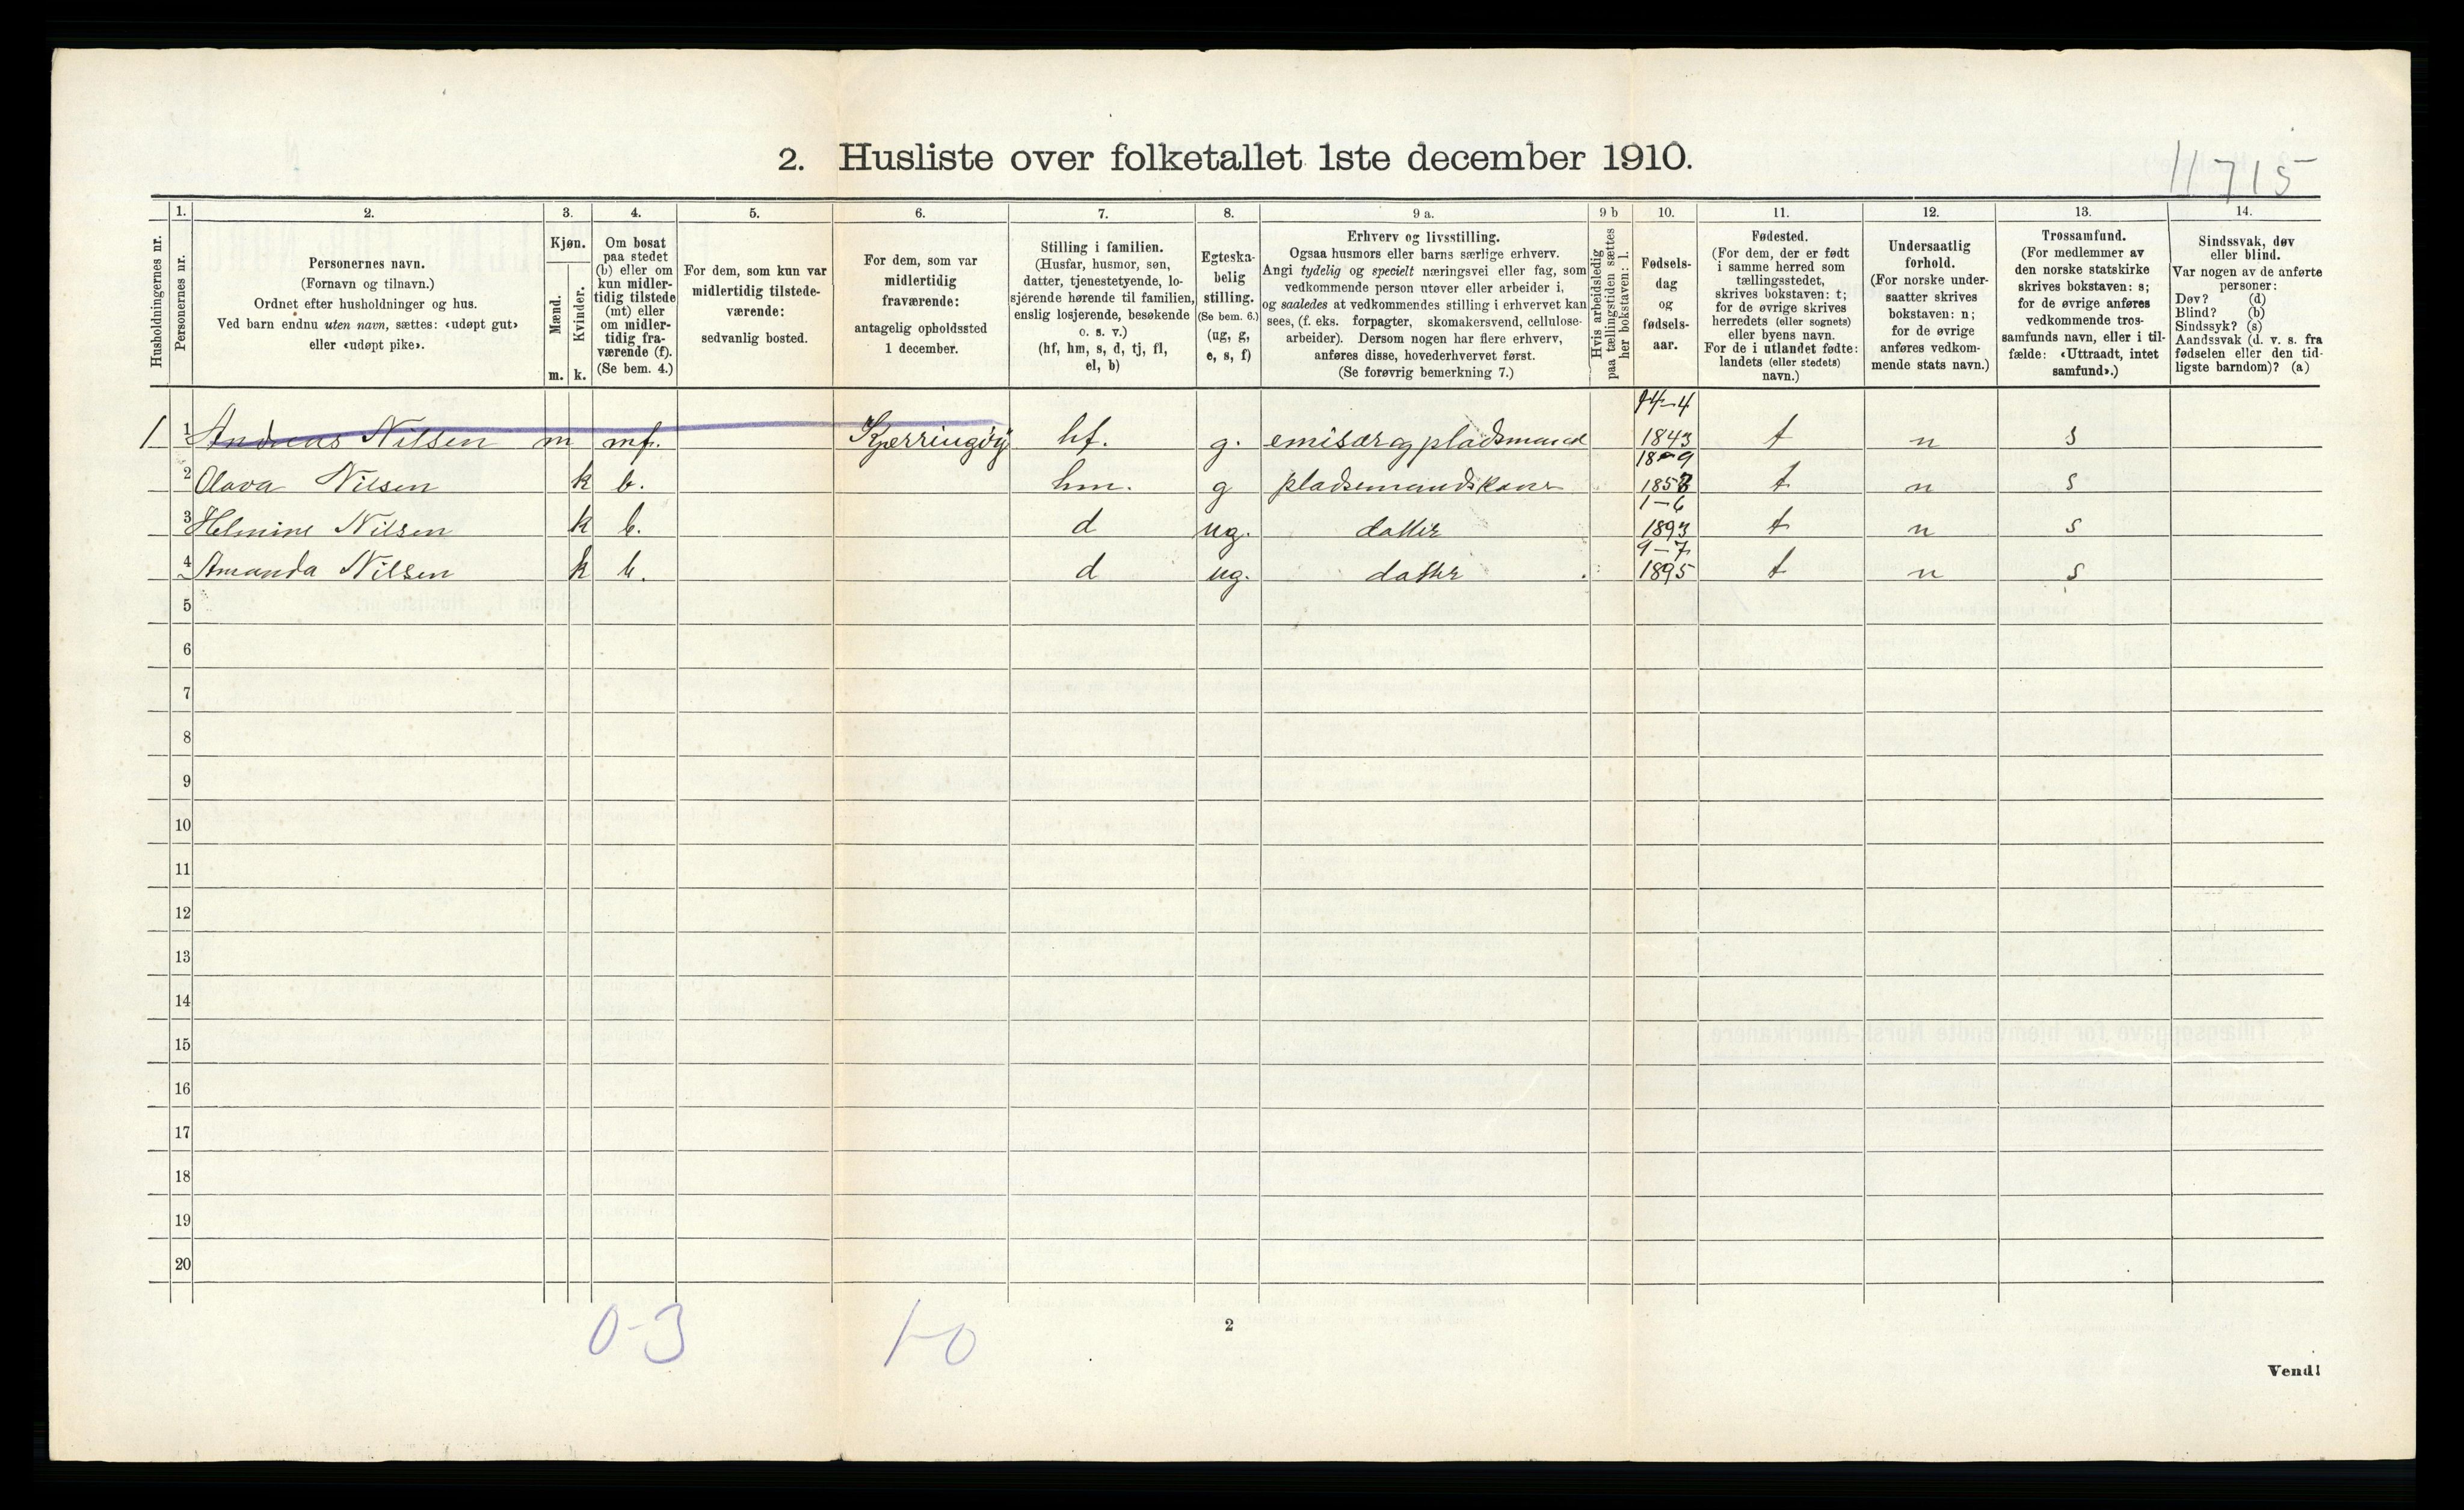 2. Husliste over folketallet 1ste december 1910.
11715
Husholdningernes nr.
1.
Personernes nr.
2.
Personernes navn.
(Fornavn og tilnavn.)
Ordnet efter husholdninger og hus.
Ved barn endnu uten navn, sættes: «udøpt gut»
eller «udøpt pike».
3.
Kjøn.
Mænd.
Kvinder.
m. k.
4.
Om bosat
paa stedet
(b) eller om
kun midler-
tidig tilstede
(mt) eller
om midler-
tidig fra-
værende (f).
(Se bem. 4.)
5.
For dem, som kun var
midlertidig tilstede-
værende:
sedvanlig bosted.
6.
For dem, som var
midlertidig
fraværende:
antagelig opholdssted
1 december.
7.
Stilling i familien.
(Husfar, husmor, søn,
datter, tjenestetyende, lo-
sjerende hørende til familien,
enslig losjerende, besøkende
o. s. v.)
(hf, hm, s, d, tj, fl,
el, b)
8.
Egteska-
belig
stilling.
(Se bem. 6.)
(ug, g,
e, s, f)
9 a.
Erhverv og livsstilling.
Ogsaa husmors eller barns særlige erhverv.
Angi tydelig og specielt næringsvei eller fag, som
vedkommende person utøver eller arbeider i,
og saaledes at vedkommendes stilling i erhvervet kan
sees, (f. eks. forpagter, skomakersvend, cellulose-
arbeider). Dersom nogen har flere erhverv,
anføres disse, hovederhvervet først.
(Se forøvrig bemerkning 7.)
9 b
Hvis arbeidsledig
paa tællingstiden sættes
her bokstaven: l.
10.
Fødsels-
dag
og
fødsels-
aar.
11.
Fødested.
(For dem, der er født
i samme herred som
tællingsstedet,
skrives bokstaven: t;
for de øvrige skrives
herredets (eller sognets)
eller byens navn.
For de i utlandet fødte:
landets (eller stedets)
navn.)
12.
Undersaatlig
forhold.
(For norske under-
saatter skrives
bokstaven: n;
for de øvrige
anføres vedkom-
mende stats navn.)
13.
Trossamfund.
(For medlemmer av
den norske statskirke
skrives bokstaven: s;
for de øvrige anføres
vedkommende tros-
samfunds navn, eller i til-
fælde: «Uttraadt, intet
samfund».)
14.
Sindssvak, døv
eller blind.
Var nogen av de anførte
personer:
Døv? (d)
Blind? (b)
Sindssyk? (s)
Aandssvak (d. v. s. fra
fødselen eller den tid-
ligste barndom)? (a)
1 1 Andreas Nilsen m mf. Kjerringøy hf. g. emisær og pladsmand 14-4 1843 t n s
2 Olava Nilsen k b. hm. g pladsemandskone 18-9 t n s
3 Helmine Nilsen k b. d ug. datter 1-6 1893 t n s
4 Amanda Nilsen k b. d ug. datter 9-7 1895 t n s
5
6
7
8
9
10
11
12
13
14
15
16
17
18
19
20
0-3 1-0
2
Vend!